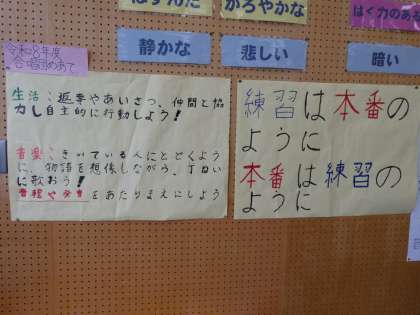 はずんだ
かろやかな
はく力のある
静かな
悲しい
暗い
令和8年度
合唱団めあて
生活：返事やあいさつ、仲間と協
力し自主的に行動しよう！
音楽：きいている人にとどくよう
に、物語を想像しながら、ていねい
に歌おう！
音程や発音をあたりまえにしよう
練習は本番の
ように
本番は練習の
ように